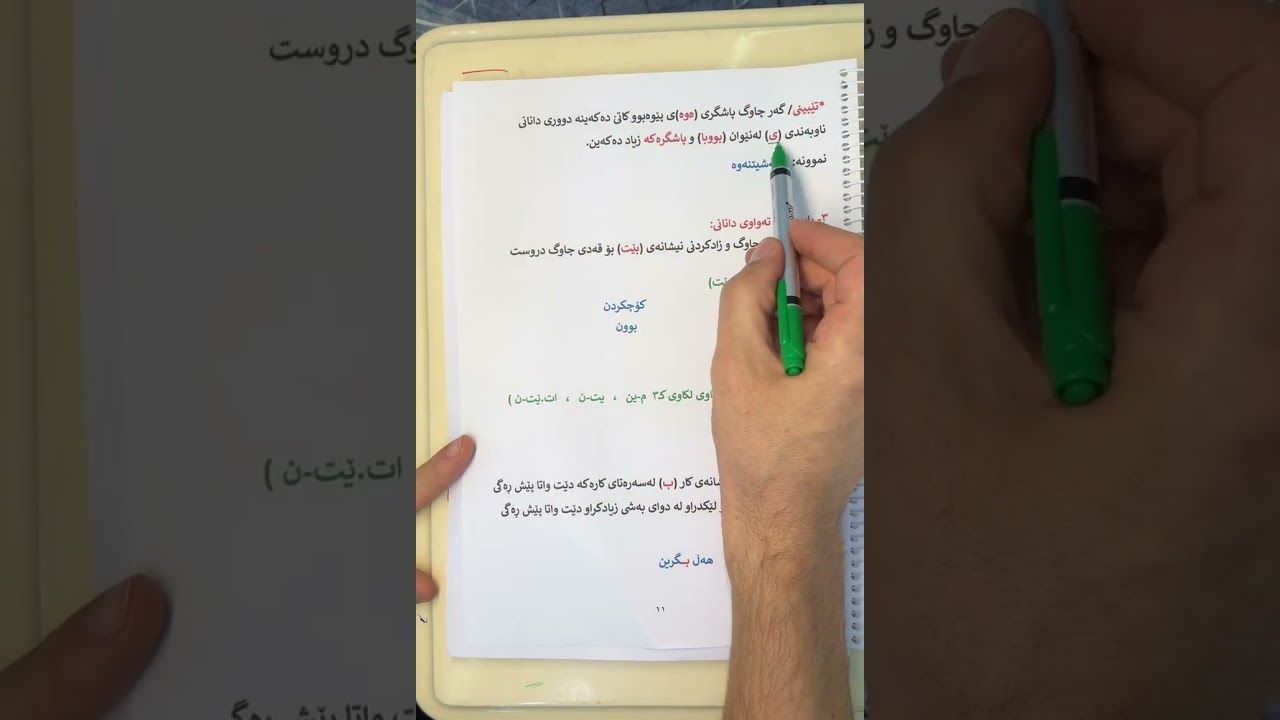 *تێبینی/ گەر چاوگ پاشگری (ەوە)ی پێوەبوو کاتێ دەکەینە دووری دانانی
ناوبەندی (ی) لەنێوان (بووبا) و پاشگرەکە زیاد دەکەین.
نموونە:
تەواوی دانانی:
چاوگ و زادکردنی نیشانەی (بێت) بۆ قەدی چاوگ دروست
کۆچکردن
بوون
لکاوی ک٣ م-ین ، یت-ن ، ات.ێت-ن )
کار (ب) لەسەرەتای کارەکە دێت واتا پێش ڕەگی
لێکدراو لە دوای بەشی زیادکراو دێت واتا پێش ڕەگی
هەڵ بـگرین
١١